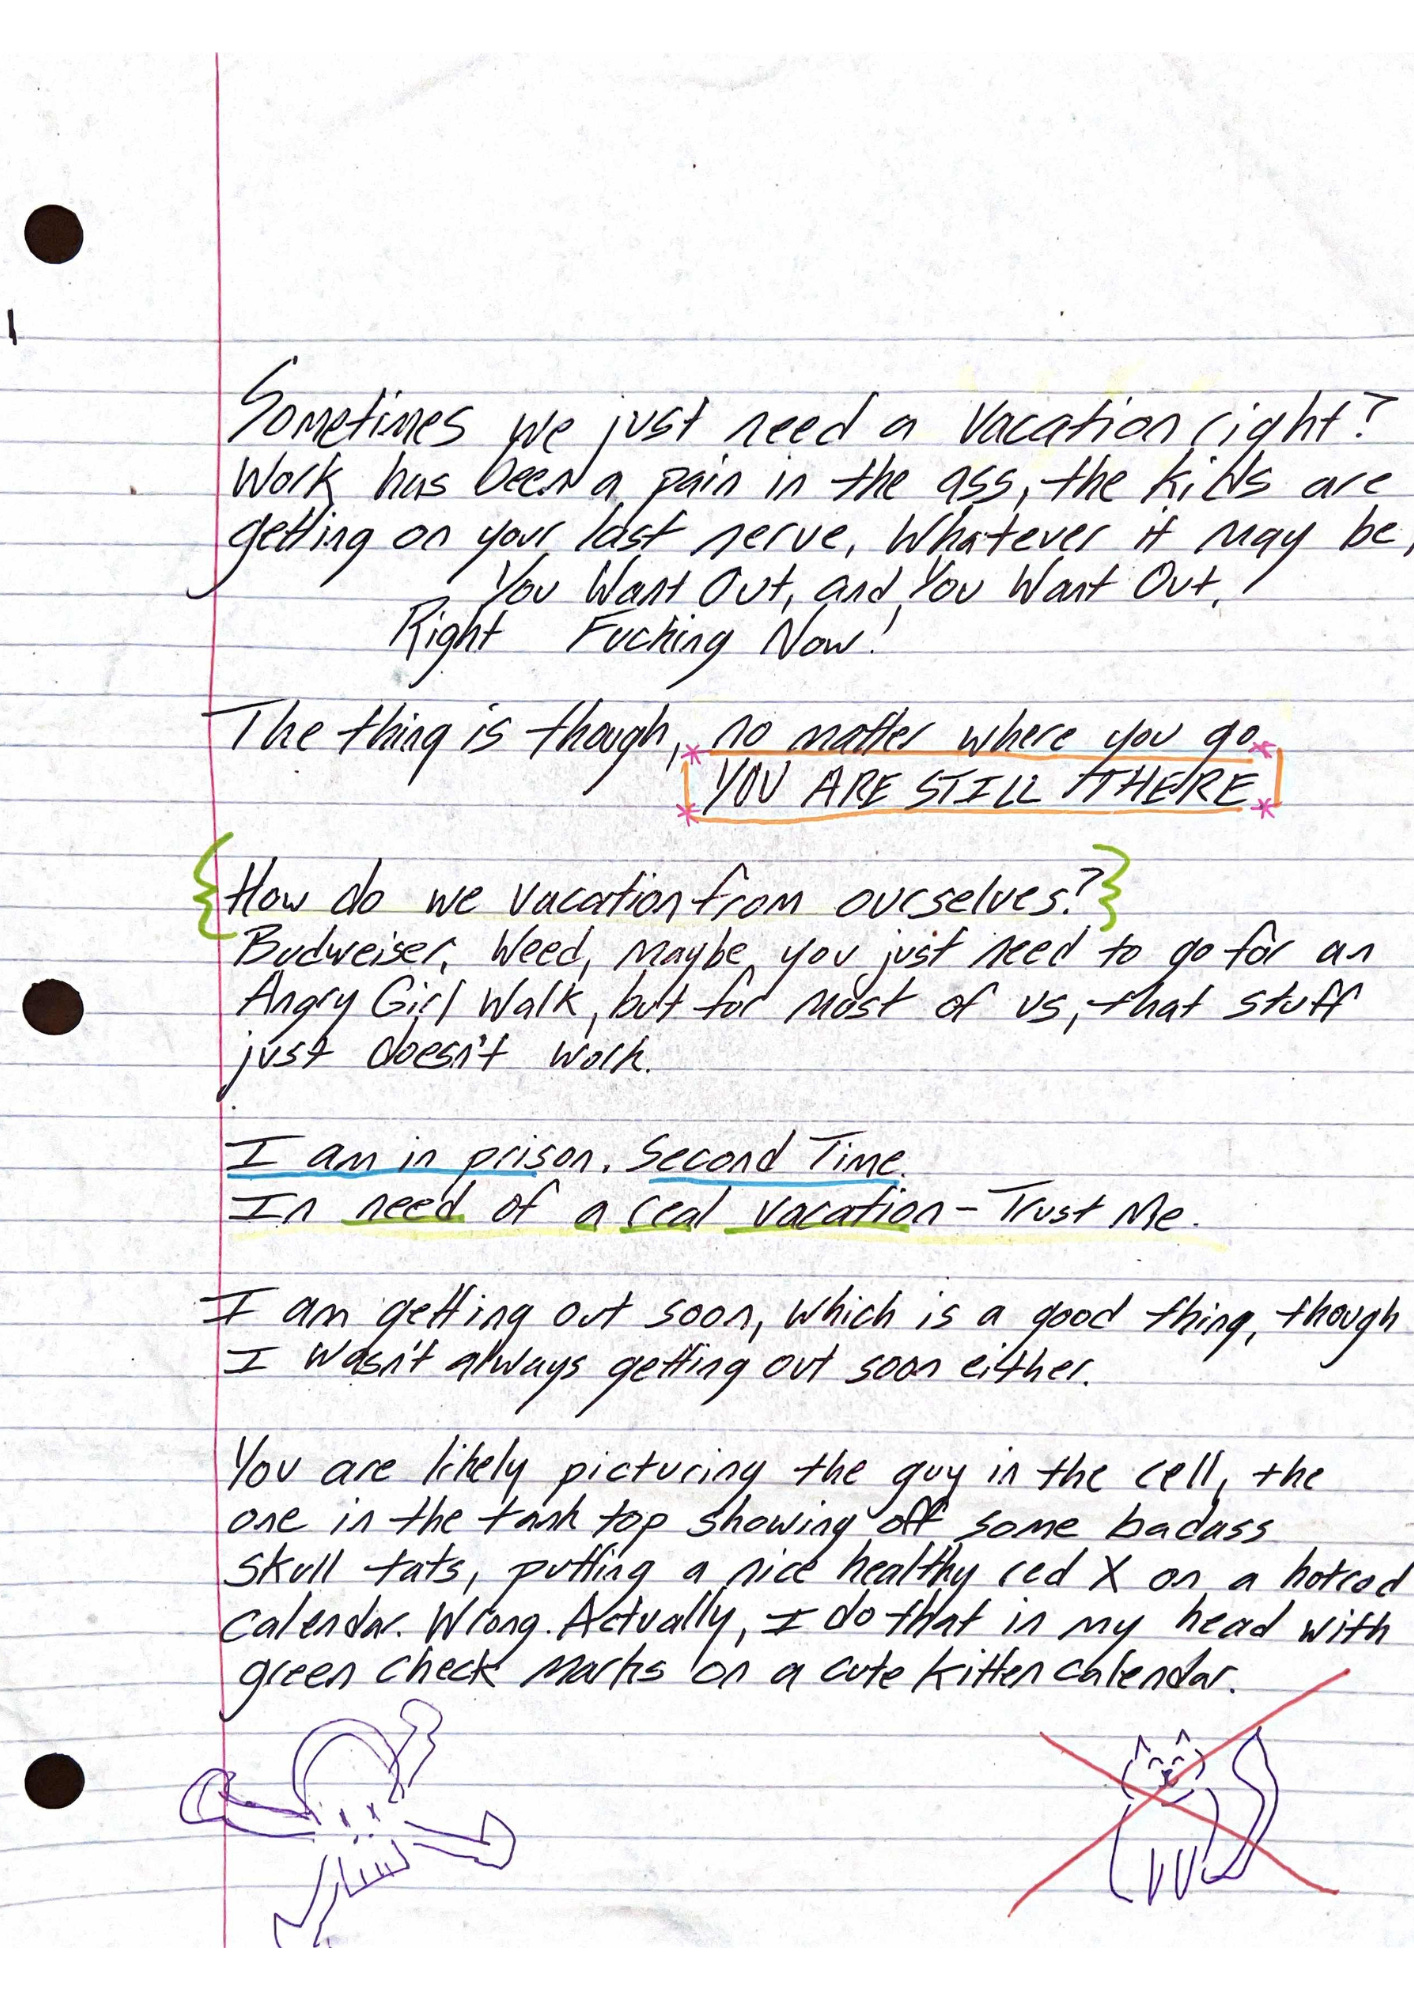 1
Sometimes we just need a vacation right?
Work has been a pain in the ass, the kids are
getting on your last nerve. Whatever it may be,
You Want Out, and You Want Out.
Right Fucking Now!
The thing is though, no matter where you go
YOU ARE STILL THERE
How do we vacation from ourselves?
Budweiser, Weed, maybe you just need to go for an
Angry Girl Walk, but for most of us, that stuff
just doesn't work.
I am in prison. Second Time.
In need of a real vacation - Trust Me.
I am getting out soon, which is a good thing, though
I wasn't always getting out soon either.
You are likely picturing the guy in the cell, the
one in the tank top showing off some badass
skull tats, putting a nice healthy red X on a hotrod
calendar. Wrong. Actually, I do that in my head with
green check marks on a cute kitten calendar.